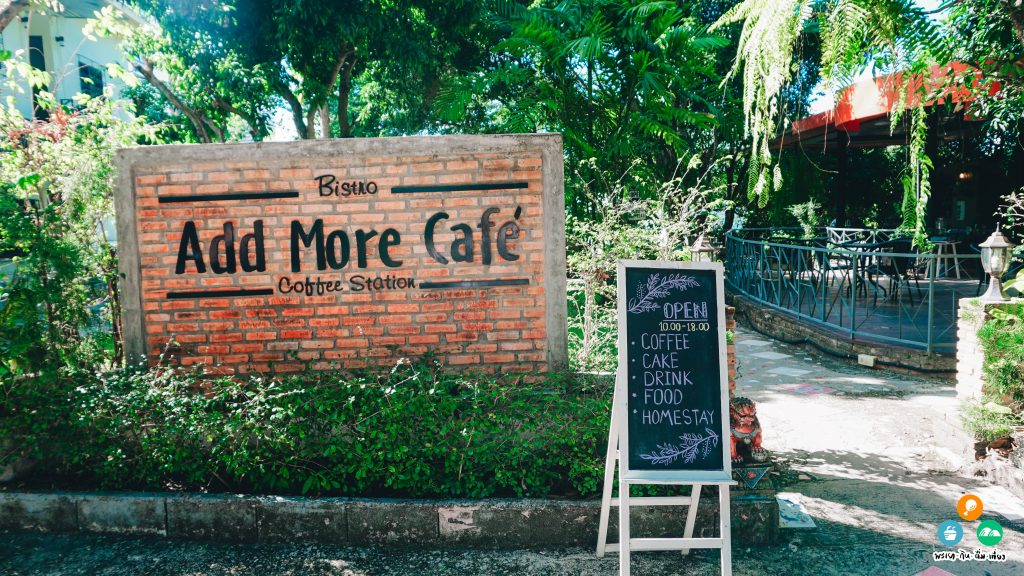 Bistro
Add More Café
Coffee Station
OPEN
10.00-18.00
• COFFEE
• CAKE
• DRINK
• FOOD
• HOMESTAY
พระเอก·กิน·ดื่ม·เที่ยว